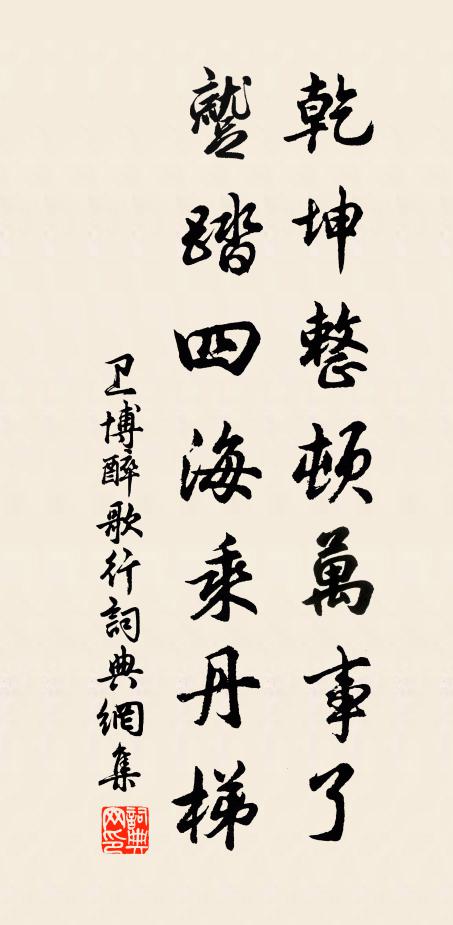 乾坤整頓萬事了
蹵踏四海乘丹梯
卫博醉歌行詞典網集
詞典網印